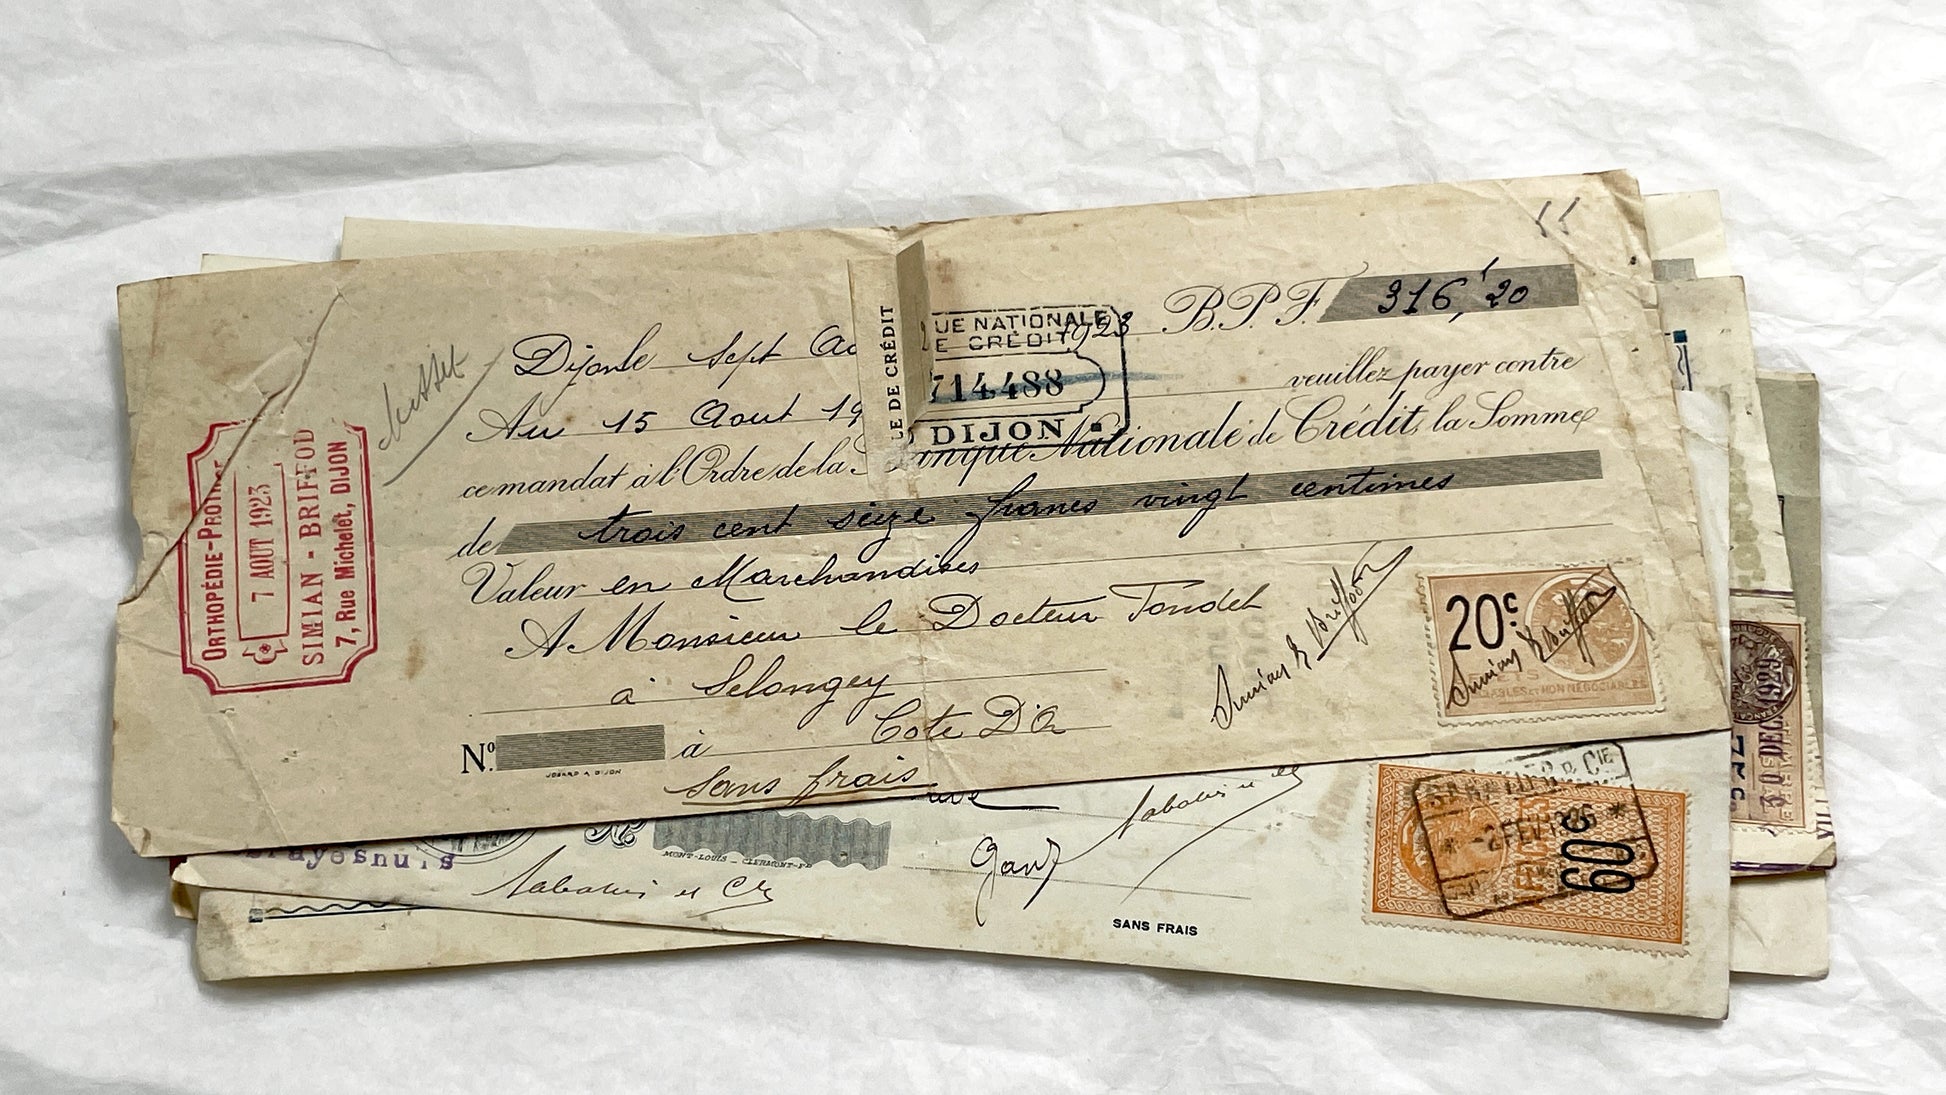 ORTHOPÉDIE-PROTHÈ
7 AOUT 1923
SIMIAN - BRIFFOD
7, Rue Michelet, DIJON
LE DE CRÉDIT
UE NATIONALE
E CRÉDIT
714.488
DIJON
B.P.F. 316,20
Dijon le Sept Ao 1923
Au 15 Aout 19 veuillez payer contre
ce mandat à l'Ordre de la Banque Nationale de Crédit, la Somme
de trois cent seize francs vingt centimes
Valeur en Marchandises
A Monsieur le Docteur Tondet
à Selongey
Nº à Cote D'Or
sans frais
JOBARD A DIJON
Simian & Briffod
20c
Simian & Briffod
NON NÉGOCIABLES
MONT-LOUIS - CLERMONT-FD
SANS FRAIS
& CIE
60c
30 DEC 1929